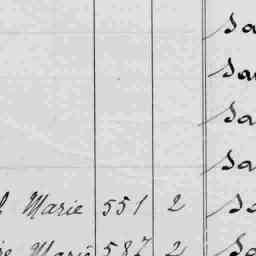 Sa
Sa
Sa
Sa
Marie 551 2 Sa
Marie 587 2 Sa